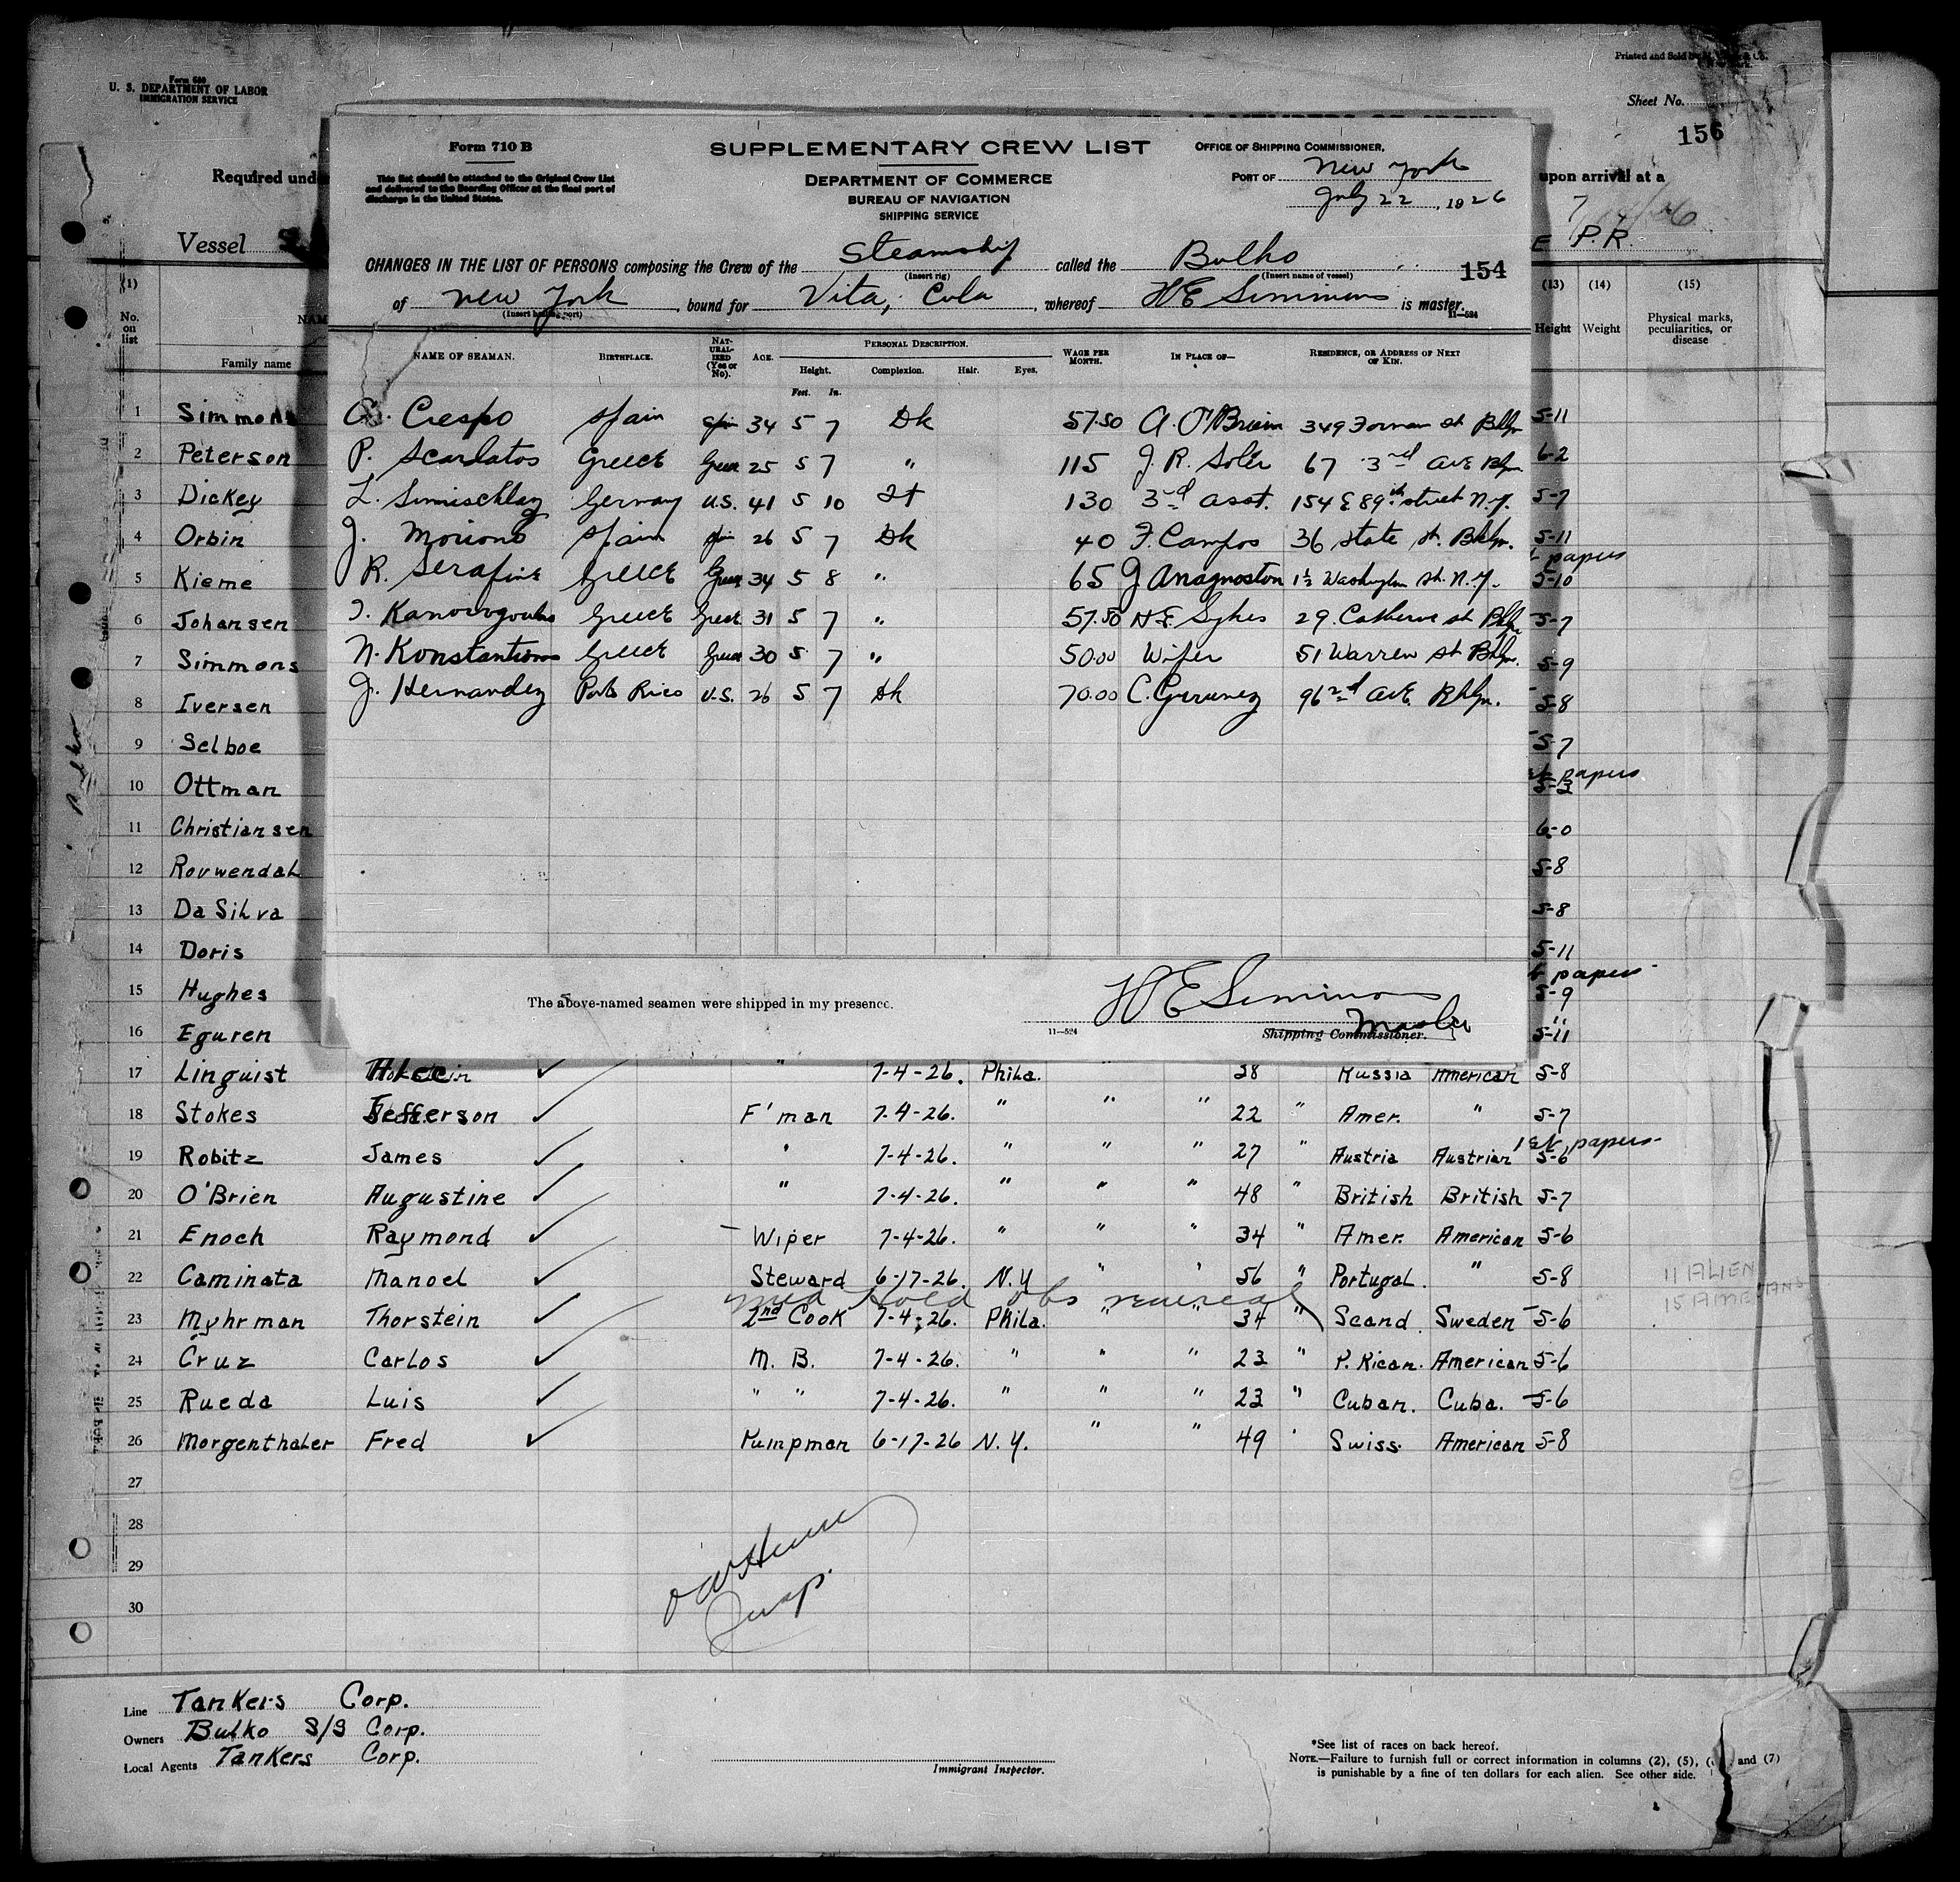 Form 680
U. S. DEPARTMENT OF LABOR
IMMIGRATION SERVICE
Printed and Sold by
Sheet No.
156
Required und
upon arrival at a
Vessel S
P.R.
Form 710 B
This list should be attached to the Original Crew List
and delivered to the Boarding Officer at the final port of
discharge in the United States.
SUPPLEMENTARY CREW LIST
DEPARTMENT OF COMMERCE
BUREAU OF NAVIGATION
SHIPPING SERVICE
OFFICE OF SHIPPING COMMISSIONER,
PORT OF New York
July 22, 1926
CHANGES IN THE LIST OF PERSONS composing the Crew of the Steamship called the Bulko
(Insert rig) (Insert name of vessel)
154
of New York, bound for Vita, Cuba, whereof H E Simmons is master.
(Insert hailing port)
11—524
NAME OF SEAMAN. BIRTHPLACE. NATURALIZED (Yes or No). AGE. PERSONAL DESCRIPTION. WAGE PER MONTH. IN PLACE OF— RESIDENCE, OR ADDRESS OF NEXT OF KIN.
Height. Complexion. Hair. Eyes.
Feet. In.
Crespo Spain Spain 34 5 7 Dk 57.50 A. O'Brien 349 Forman st Bklyn
P. Scarlatos Greece Greece 25 5 7 " 115 J. R. Soler 67 3rd Ave Bkyn.
L. Germany U.S. 41 5 10 130 3rd Asst. 154 E 89th street N.Y.
J. Spain Spain 26 5 7 Dk 40 F. Campos 36 State st. Bklyn.
R. Serafine Greece Greece 34 5 8 " 65 J Anagnoston 1½ Washington St. N.Y.
Greece Greek 31 5 7 " 57.50 H.E. Sykes 29 Catherine st Bklyn
N. Konstantinos Greece Greece 30 5 7 " 50.00 Wiper 51 Warren st Bklyn.
J. Hernandez Porto Rico U.S. 26 5 7 Dk 70.00 C. 96 2nd Ave. Bklyn.
The above-named seamen were shipped in my presence.
H E Simmons
Master
11—524
Shipping Commissioner.
(1) (13) (14) (15)
No. on list
NAM
Family name
Height Weight Physical marks, peculiarities, or disease
1 Simmons 5-11
2 Peterson 6-2
3 Dickey 5-7
4 Orbin 5-11
papers
5 Kieme 5-10
6 Johansen 5-7
7 Simmons 5-9
8 Iversen 5-8
9 Selboe 5-7
papers
10 Ottman 5-3
11 Christiansen 6-0
12 Rouwendal 5-8
13 DaSilva 5-8
14 Doris 5-11
papers
15 Hughes 5-9
16 Eguren 5-11
17 Linguist " 7-4-26. Phila. " 38 Russia American 5-8
18 Stokes Jefferson F'man 7-4-26. " " " 22 " Amer. " 5-7
1st papers
19 Robitz James " 7-4-26. " " " 27 " Austria Austrian 5-6
20 O'Brien Augustine " 7-4-26. " " " 48 " British British 5-7
21 Enoch Raymond Wiper 7-4-26. " " " 34 " Amer. American 5-6
22 Caminata Manoel Steward 6-17-26. N.Y " " 56 " Portugal. " 5-8
med Hold obs venereal
23 Myhrman Thorstein 2nd Cook 7-4-26. Phila. " " 34 " Scand. Sweden 5-6
24 Cruz Carlos M. B. 7-4-26. " " " 23 " P. Rican. American 5-6
25 Rueda Luis " " 7-4-26. " " " 23 " Cuban. Cuba. 5-6
26 Morgenthaler Fred Pumpman 6-17-26 N.Y. " " 49 " Swiss. American 5-8
27
28
29
30
11 ALIEN
15 AMERICANS
Insp.
Line Tankers Corp.
Owners Bulko S/S Corp.
Local Agents Tankers Corp.
Immigrant Inspector.
*See list of races on back hereof.
NOTE.—Failure to furnish full or correct information in columns (2), (5), ( and (7)
is punishable by a fine of ten dollars for each alien. See other side.